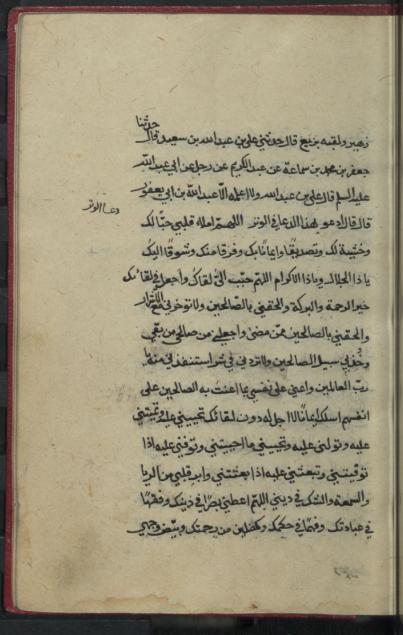 حدثنا
زهير ولقبه بزيع قال حدثني علي بن عبد الله بن سعيد قال
جعفر بن محمد بن سماعة عن عبد الكريم عن رجل عن ابي عبد الله
عليه السلم قال علي بن عبد الله ولا اعلمه الا عبد الله بن ابي يعفور
دعا الوتر
قال قال ادعو بهذا الدعا في الوتر اللهم املا قلبي حبا لك
وخشية لك وتصديقا وايمانا بك وفرقا منك وشوقا اليك
يا ذا الجلال ويا ذا الاكرام اللهم حبب الي لقاك واجعل في لقائك
خير الرحمة والبركة والحقني بالصالحين ولا توخرني مع الاشرار
والحقني بالصالحين ممن مضى واجعلني من صالحي من بقي
وخذ بي سبيل الصالحين ولا تردني في شر استنقذتني منه يا
رب العالمين واعني على نفسي بما اعنت به الصالحين على
انفسهم اسلك ايمانا لا اجل له دون لقائك تحييني عليه وتميتني
عليه وتولني عليه وتحييني ما احييتني وتوفني عليه اذا
توفيتني وتبعثني عليه اذا بعثتني وابر قلبي من الريا
والسمعة والشك في ديني اللهم اعطني بصرا في دينك وفقها
في عبادتك وفهما في حكمك وكفلين من رحمتك وبيض وجهي